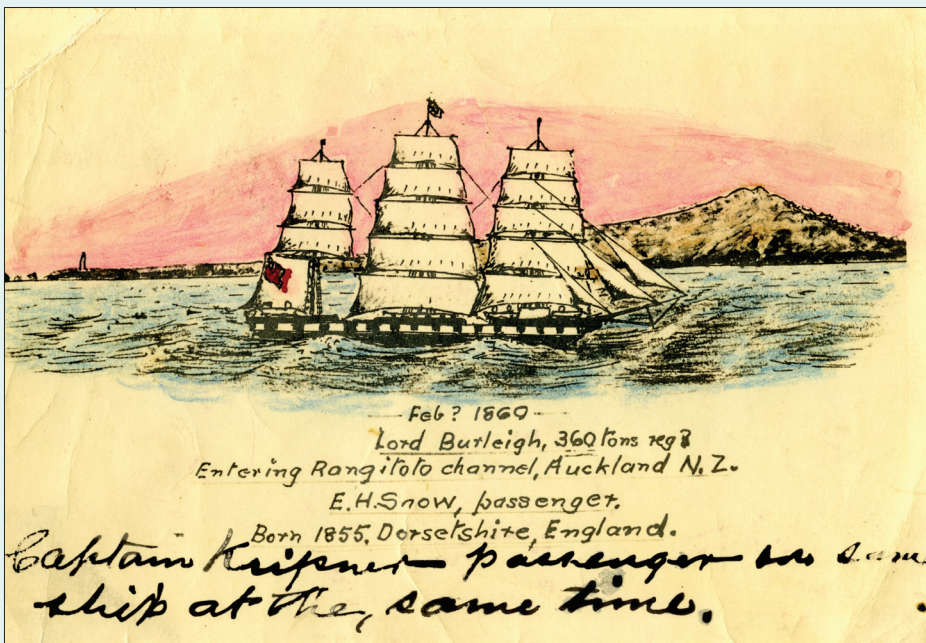 Feb? 1860
Lord Burleigh, 360 tons reg?
Entering Rangitoto channel, Auckland N.Z.
E.H.Snow, passenger.
Born 1855, Dorsetshire, England.
Captain Krippner passenger on same
ship at the, same time.